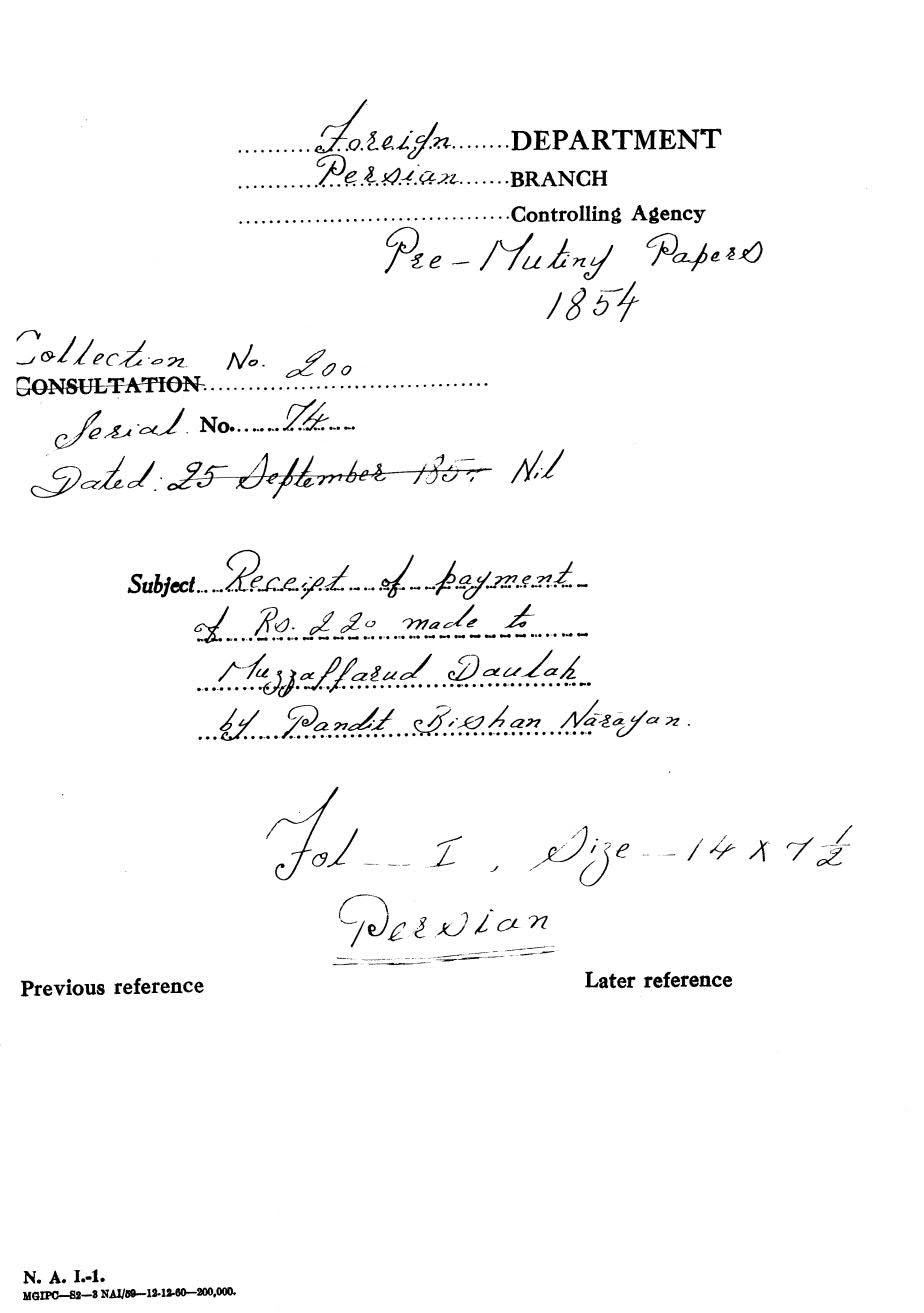 Foreign DEPARTMENT
Persian BRANCH
Controlling Agency
Pre-Mutiny Papers
1854
Collection No. 200
CONSULTATION
Serial No. 74
Dated: 25 September 185- Nil
Subject Receipt of payment
of Rs. 220 made to
Muzzaffarud Daulah
by Pandit Bishan Narayan.
Fol -- I, Size -- 14 x 7 1/2
Persian
Previous reference Later reference
N. A. I.-1.
MGIPC—S2—3 NAI/59—12-12-60—200,000.